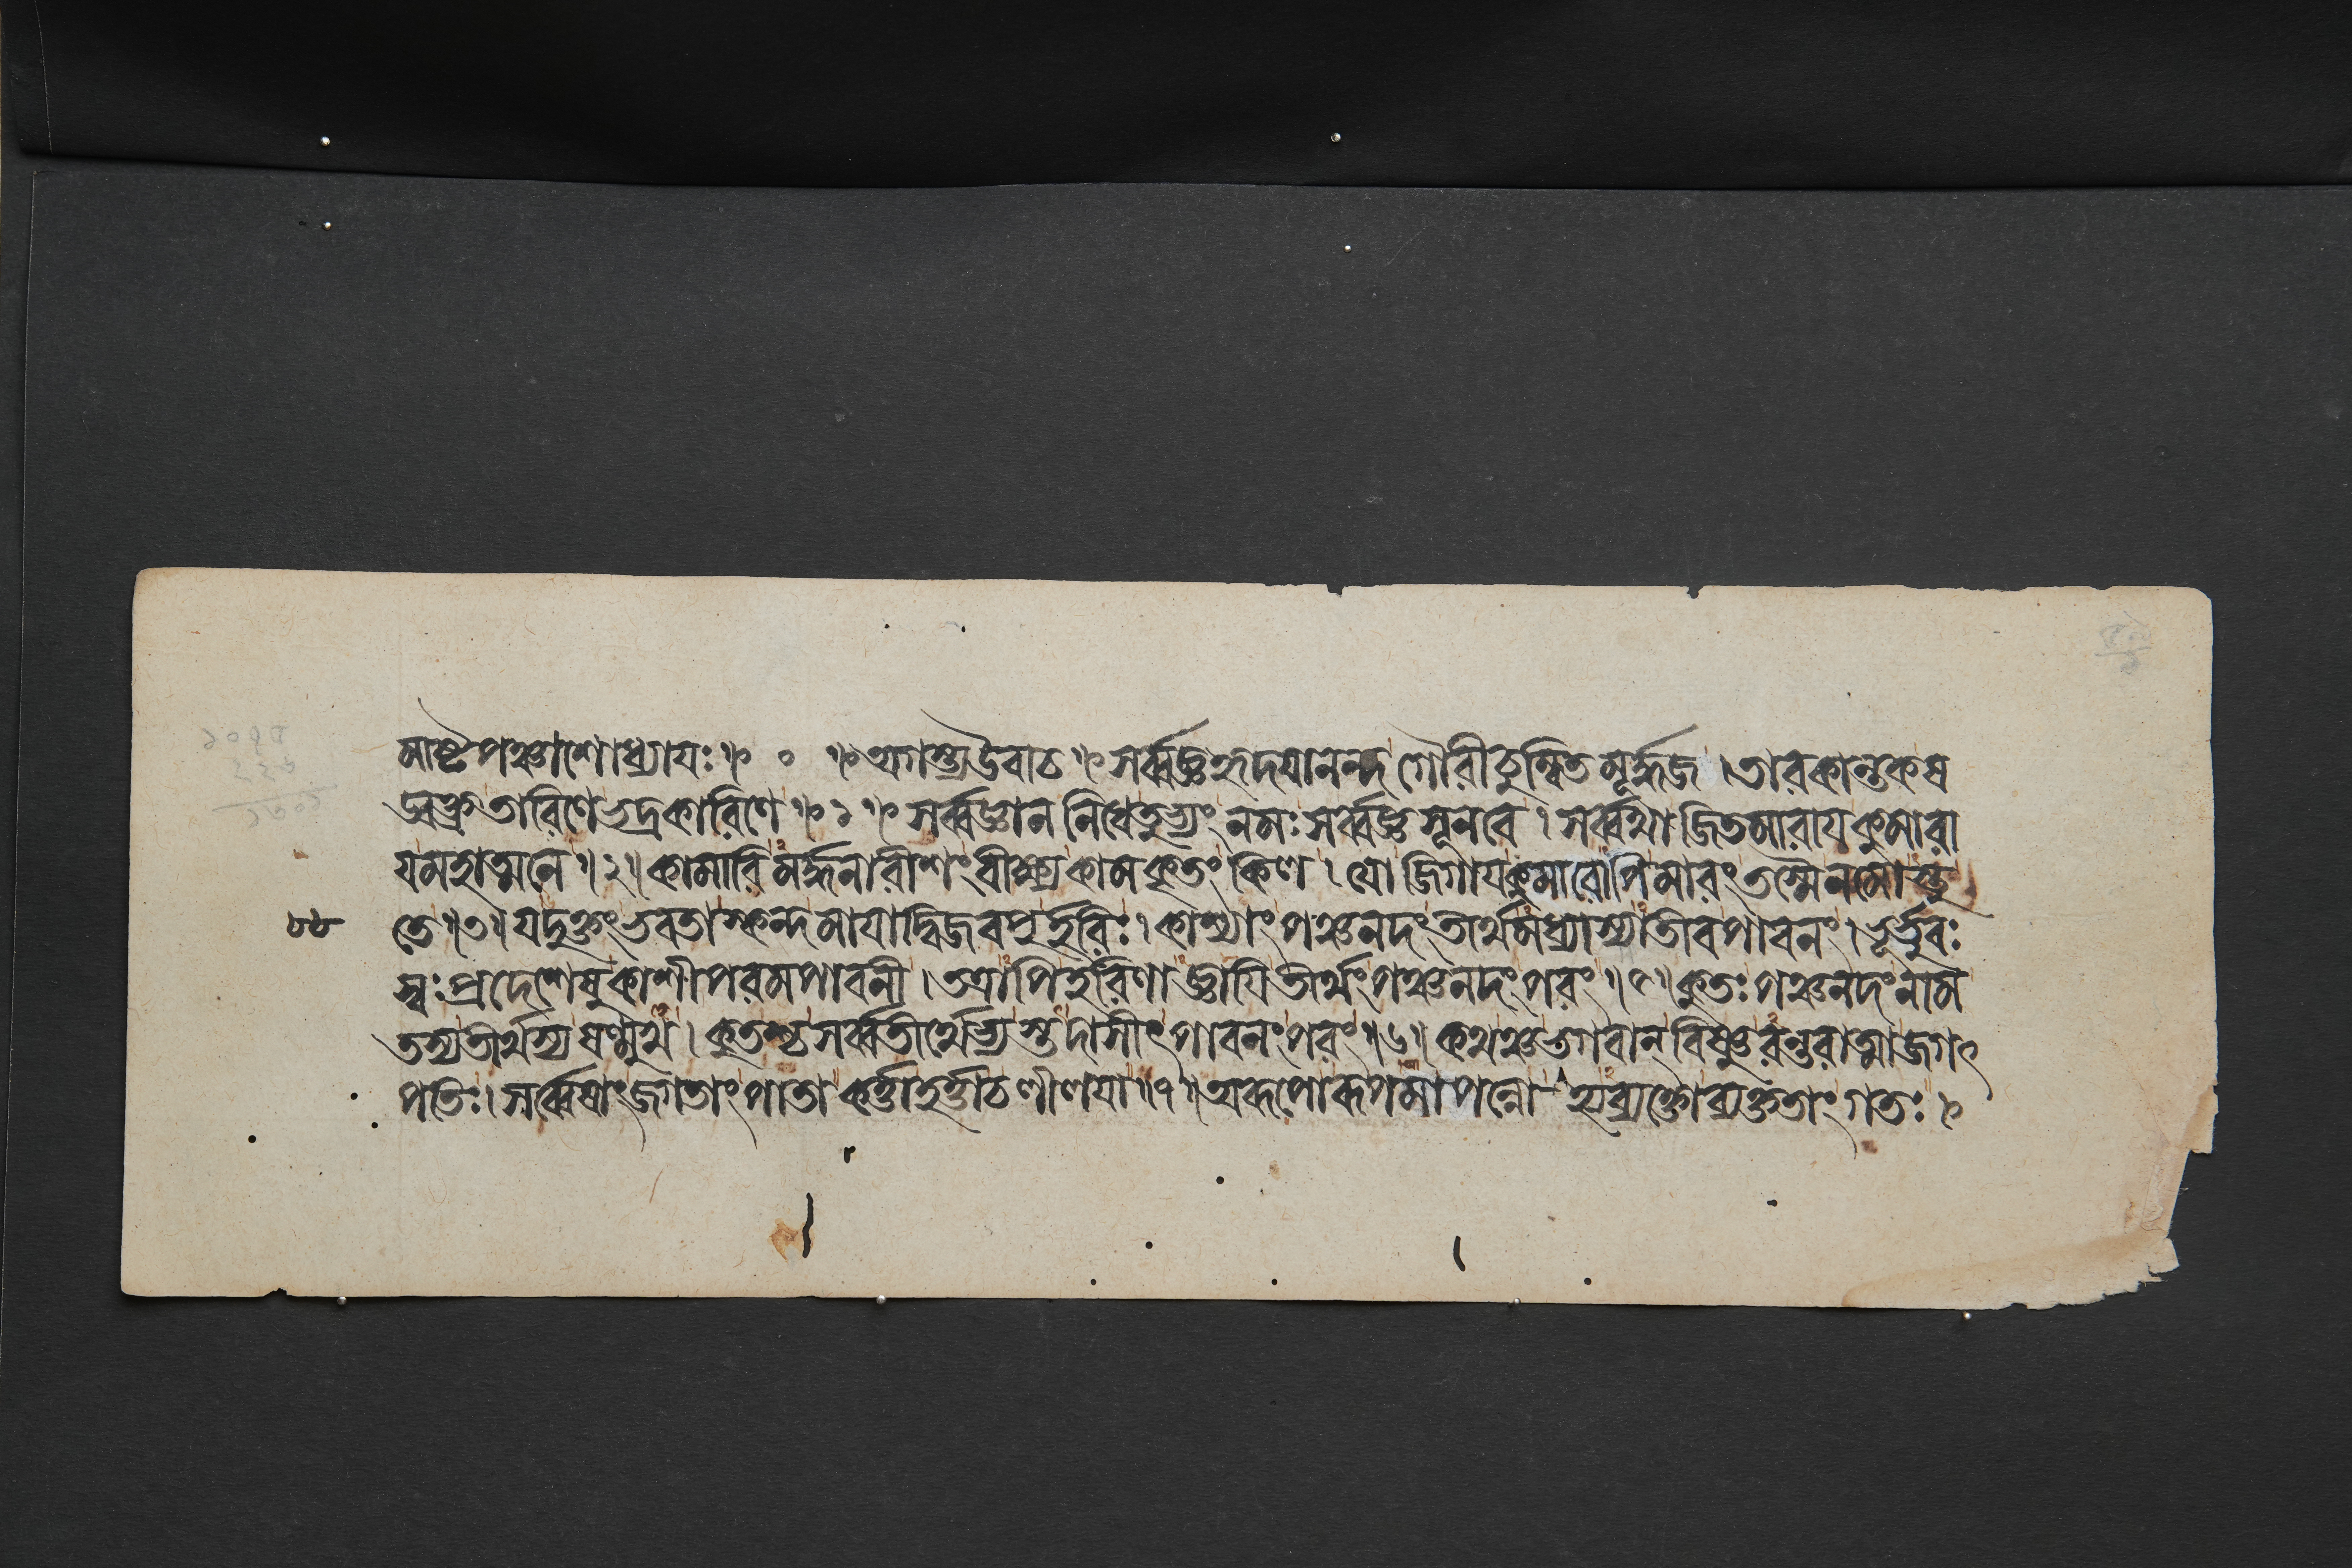 মাষ্টপঞ্চাশোধ্যায়ঃ॥ ० ॥অগস্ত্যউবাচ॥সর্ব্বজ্ঞহৃদয়ানন্দ গৌরীচুম্বিতমূর্দ্ধজ।তারকান্তকষ
ণ্মুখতারিণেভদ্রকারিণে॥১॥সর্ব্বজ্ঞাননিধেতুভ্যংনমঃসর্ব্বজ্ঞসূনবে।সর্ব্বথাজিতমারায়কুমারা
য়মহাত্মনে॥২॥কামারিমর্দ্ধনারীশংবীক্ষ্যকামকৃতংকিল।যোজিগায়কুমারোপিমারংতস্মৈনমোস্তু
৮৮ তে॥৩॥যদুক্তংভবতাস্কন্দমায়াদ্বিজবপুর্হরিঃ।কাশ্যাংপঞ্চনদংতীর্থমধ্যাস্যাতীবপাবনং।ভূর্ভুবঃ
স্বঃপ্রদেশেষুকাশীপরমপাবনী।তত্রাপিহরিণাজ্ঞায়িতীর্থংপঞ্চনদংপরং॥৫॥কুতঃপঞ্চনদংনাম
তস্যতীর্থস্যষণ্মুখ।কুতশ্চসর্ব্বতীর্থেভ্যস্তদাসীৎপাবনংপরং॥৬॥কথঞ্চভগবান্‌বিষ্ণুরন্তরাত্মাজগৎ
পতিঃ।সর্ব্বেষাংজগতাংপাতাকর্ত্তাহর্ত্তাচলীলয়া॥৭॥অরূপোরূপমাপন্নোহ্যব্যক্তোব্যক্ততাংগতঃ।